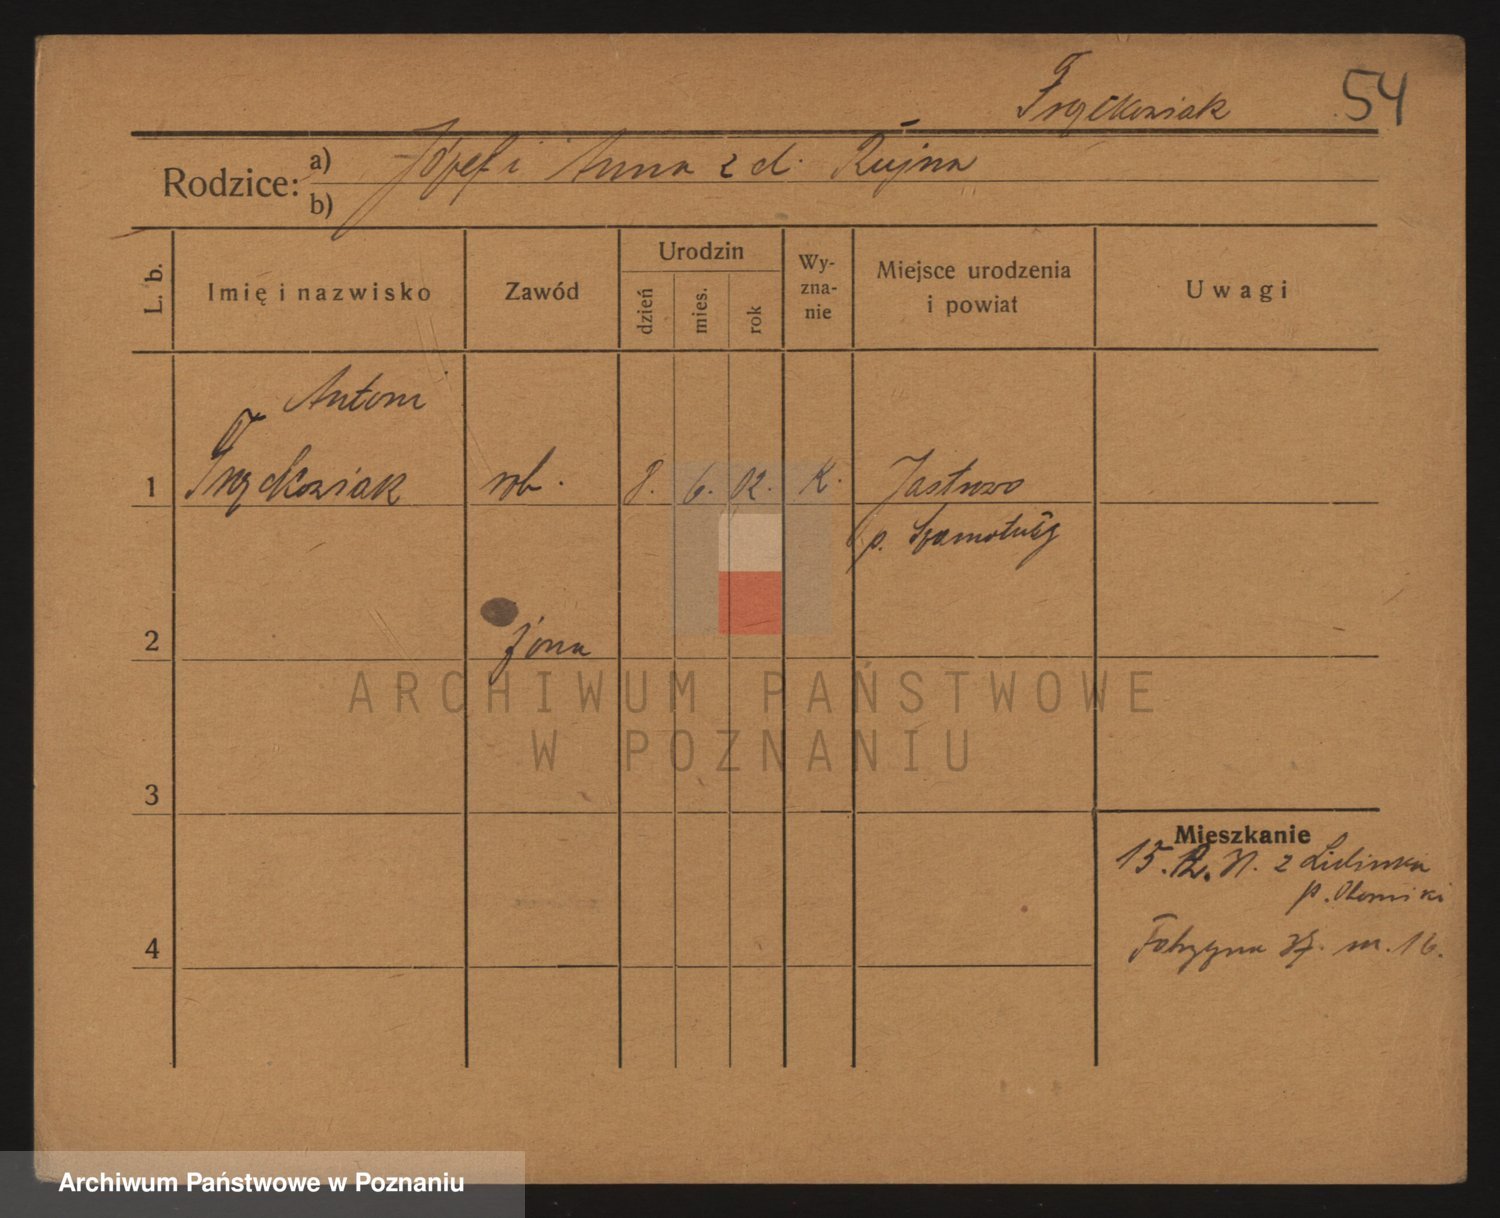 54
Rodzice: a) Józef i Anna z d. Rujna
b)
L. b.
Imię i nazwisko
Zawód
Urodzin
dzień
mies.
rok
Wy-
zna-
nie
Miejsce urodzenia
i powiat
Uwagi
Antoni
1 rob. 8. 6. 02. K. Jastrowo
p. Szamotuły
2 żona
3
4
Mieszkanie
15. 12. 31. z
p. Oborniki
m. 16.
ARCHIWUM PAŃSTWOWE
W POZNANIU
Archiwum Państwowe w Poznaniu